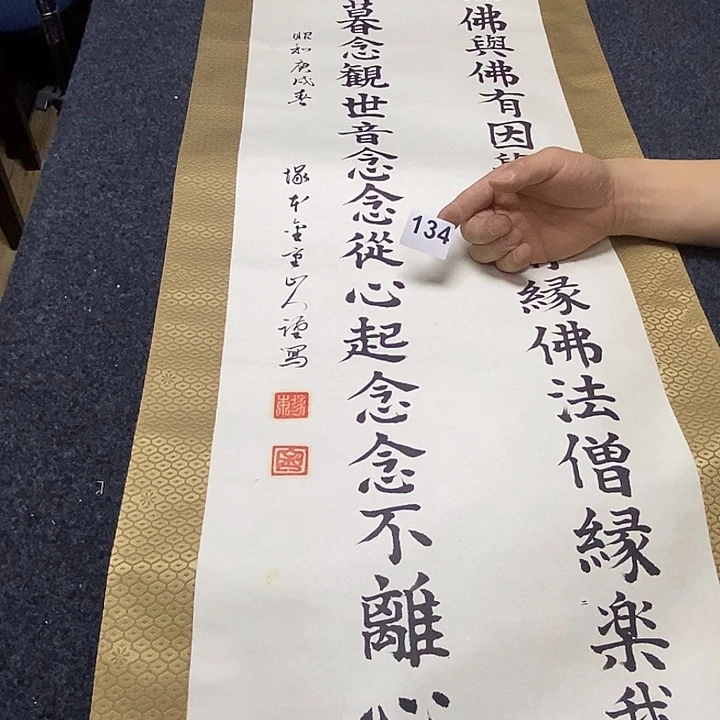 佛與佛有因
縁佛法僧縁楽我
暮念観世音念念從心起念念不離心
昭和庚戌春
塚本金重山人謹寫
134